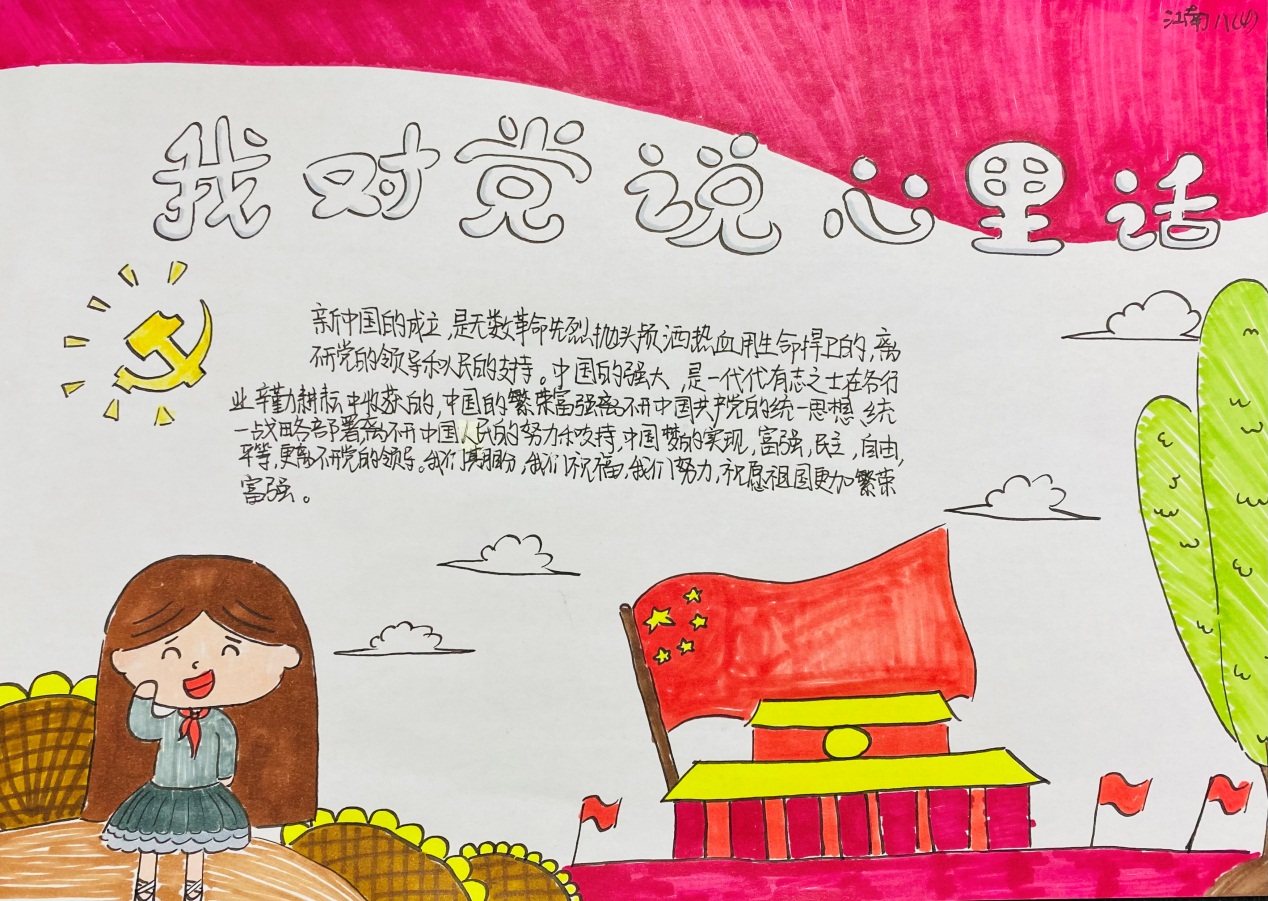 江南八(4)
我对党说心里话
新中国的成立,是无数革命先烈抛头颅洒热血用生命捍卫的,离
不开党的领导和人民的支持。中国的强大,是一代代有志之士在各行
业辛勤耕耘中收获的,中国的繁荣富强离不开中国共产党的统一思想,统
一战略部署离不开中国人民的努力和支持,中国梦的实现,富强,民主,自由,
平等,更离不开党的领导,我们期盼,我们祝福,我们努力,祝愿祖国更加繁荣
富强。